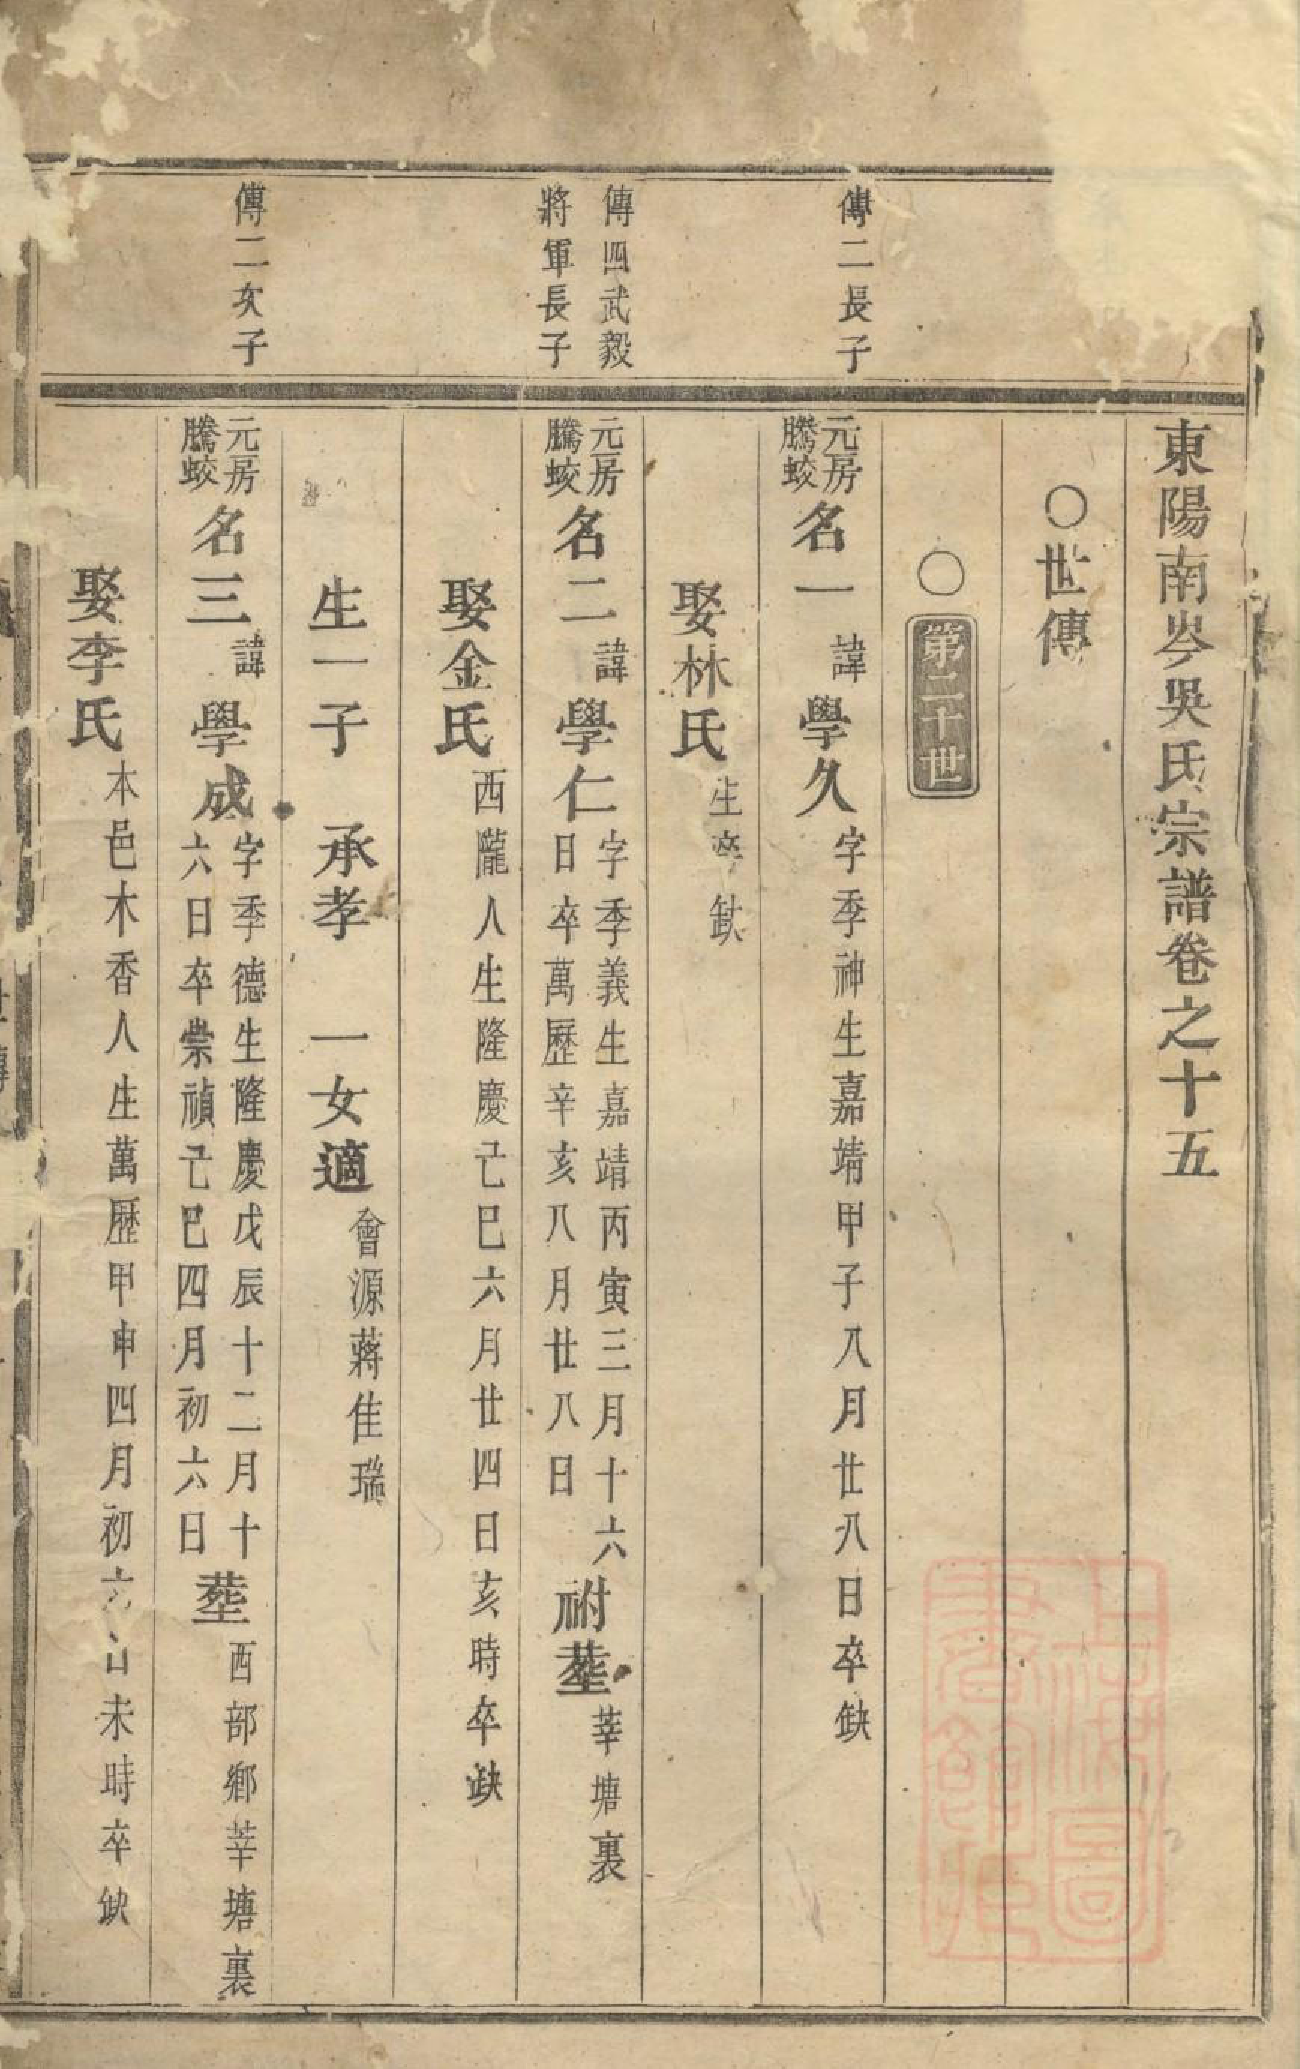 東陽南岑吳氏宗譜卷之十五
○世傳
○第二十世
傳二長子
元房
騰蛟
名一 諱 學久 字季神生嘉靖甲子八月廿八日卒缺
娶林氏 生卒缺
傳四武毅
將軍長子
元房
騰蛟
名二 諱 學仁 字季義生嘉靖丙寅三月十六
日卒萬歷辛亥八月廿八日
祔塟 莘塘裏
娶金氏 西隴人生隆慶己巳六月廿四日亥時卒缺
生一子 承孝 一女適 會源蔣佳瑞
傳二次子
元房
騰蛟
名三 諱 學成 字季德生隆慶戊辰十二月十
六日卒崇禎己巳四月初六日
塟 西部鄉莘塘裏
娶李氏 本邑木香人生萬歷甲申四月初六日未時卒缺
世傳
上海圖
書館藏